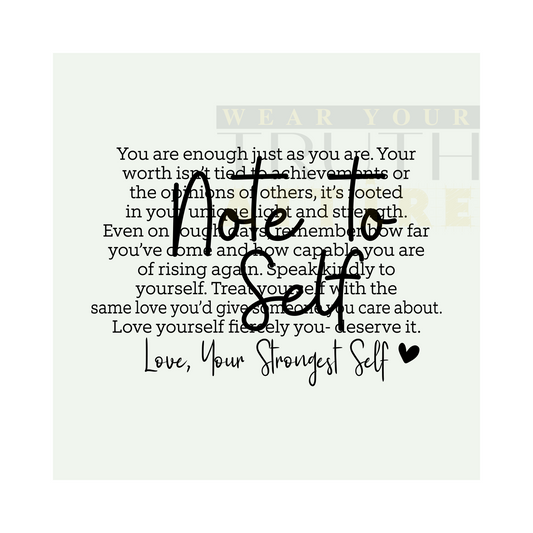 WEAR YOUR
TRUTH
You are enough just as you are. Your
worth isn't tied to achievements or
the opinions of others, it's rooted
in your unique light and strength.
Even on rough days, remember how far
you've come and how capable you are
of rising again. Speak kindly to
yourself. Treat yourself with the
same love you'd give someone you care about.
Love yourself fiercely you- deserve it.
Note to
Self
Love, Your Strongest Self